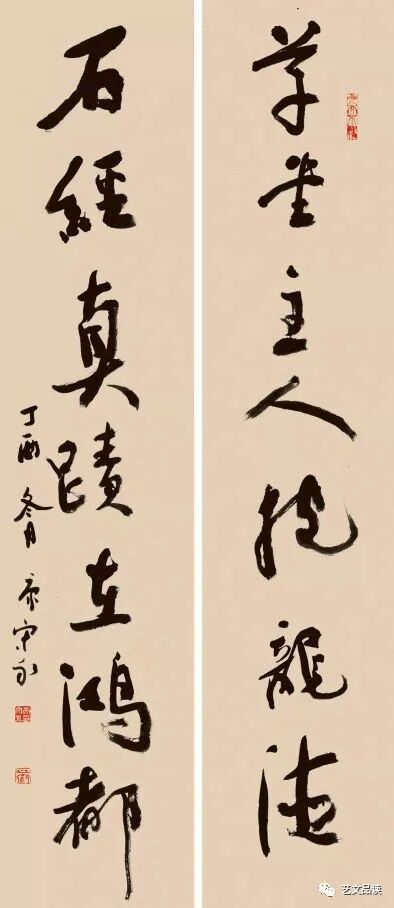 草堂主人抱龍德
石經真蹟在鴻都
丁酉冬月
艺文品读